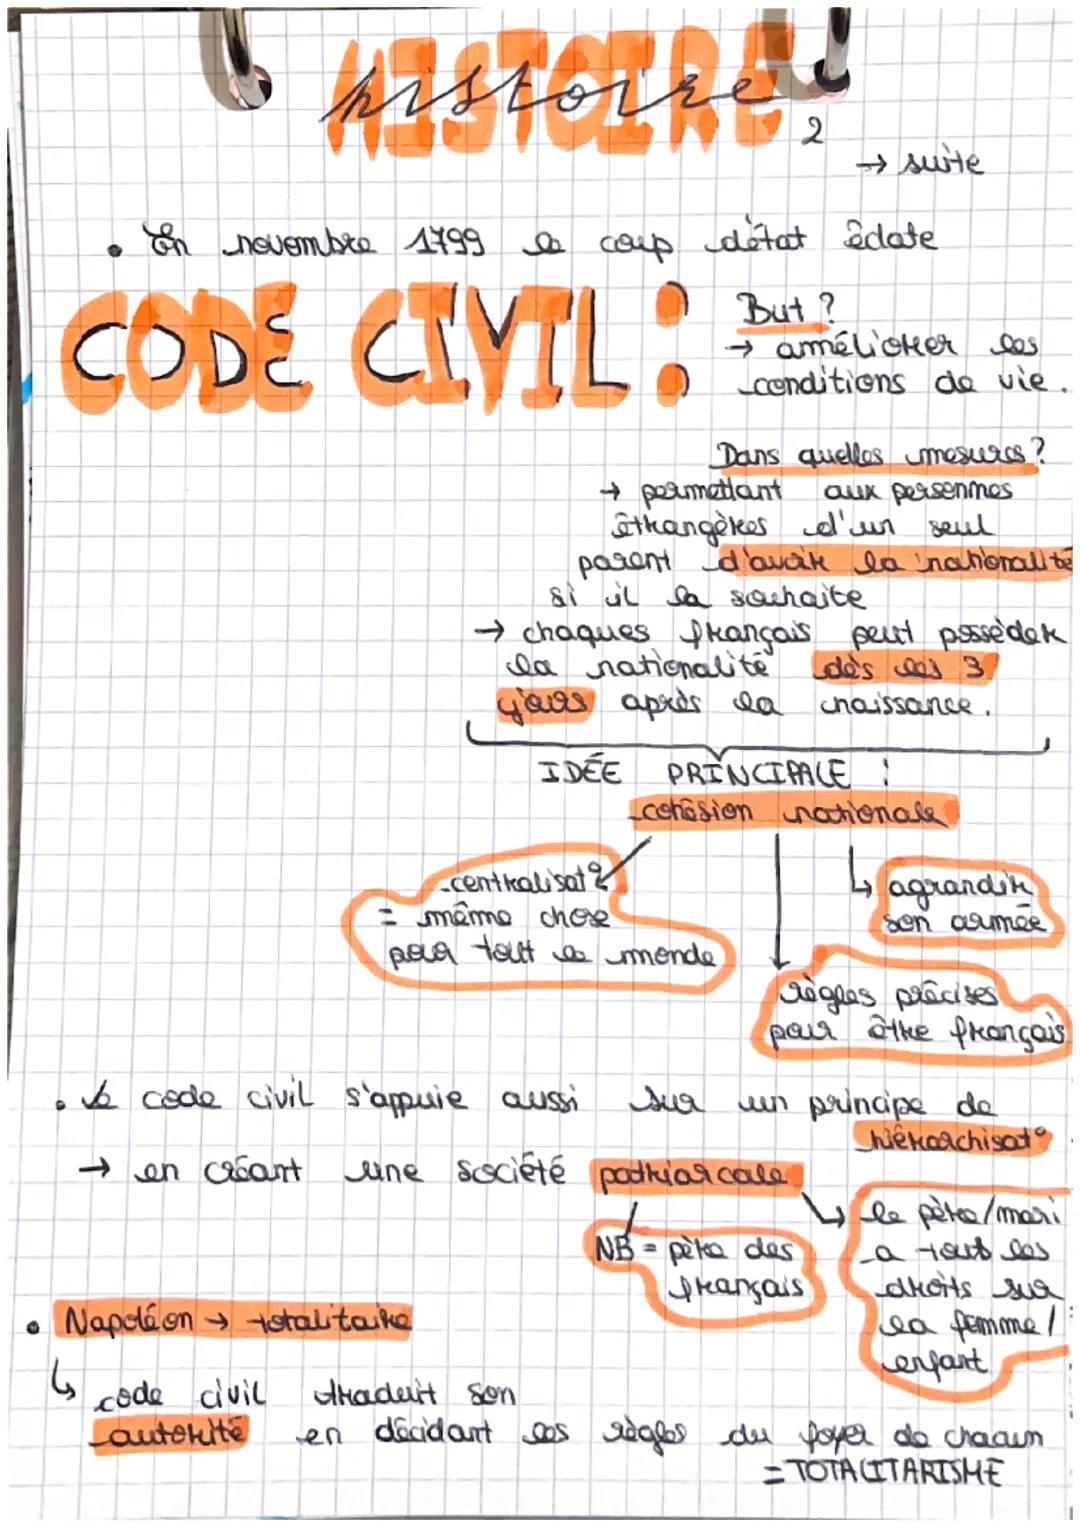 HISTOIRE
histoire
2
→ suite
• En novembre 1799 le coup d'état éclate
CODE CIVIL :
But ?
→ améliorer les
conditions de vie.
Dans quelles mesures ?
→ permettant aux personnes
étrangères d'un seul
parent d'avoir la nationalité
si il la souhaite
→ chaques français peut posséder
la nationalité dès les 3
jours après la naissance.
IDÉE PRINCIPALE :
cohésion nationale
centralisat°
= même chose
pour tout le monde
↳ agrandir
son armée
règles précises
pour être français
• le code civil s'appuie aussi sur un principe de
hiérarchisat°
→ en créant une société patriarcale
NB = père des
français
↳ le père/mari
a tout les
droits sur
la femme/
enfant
• Napoléon → totalitaire
↳ code civil traduit son
autorité en décidant les règles du foyer de chacun
= TOTALITARISME